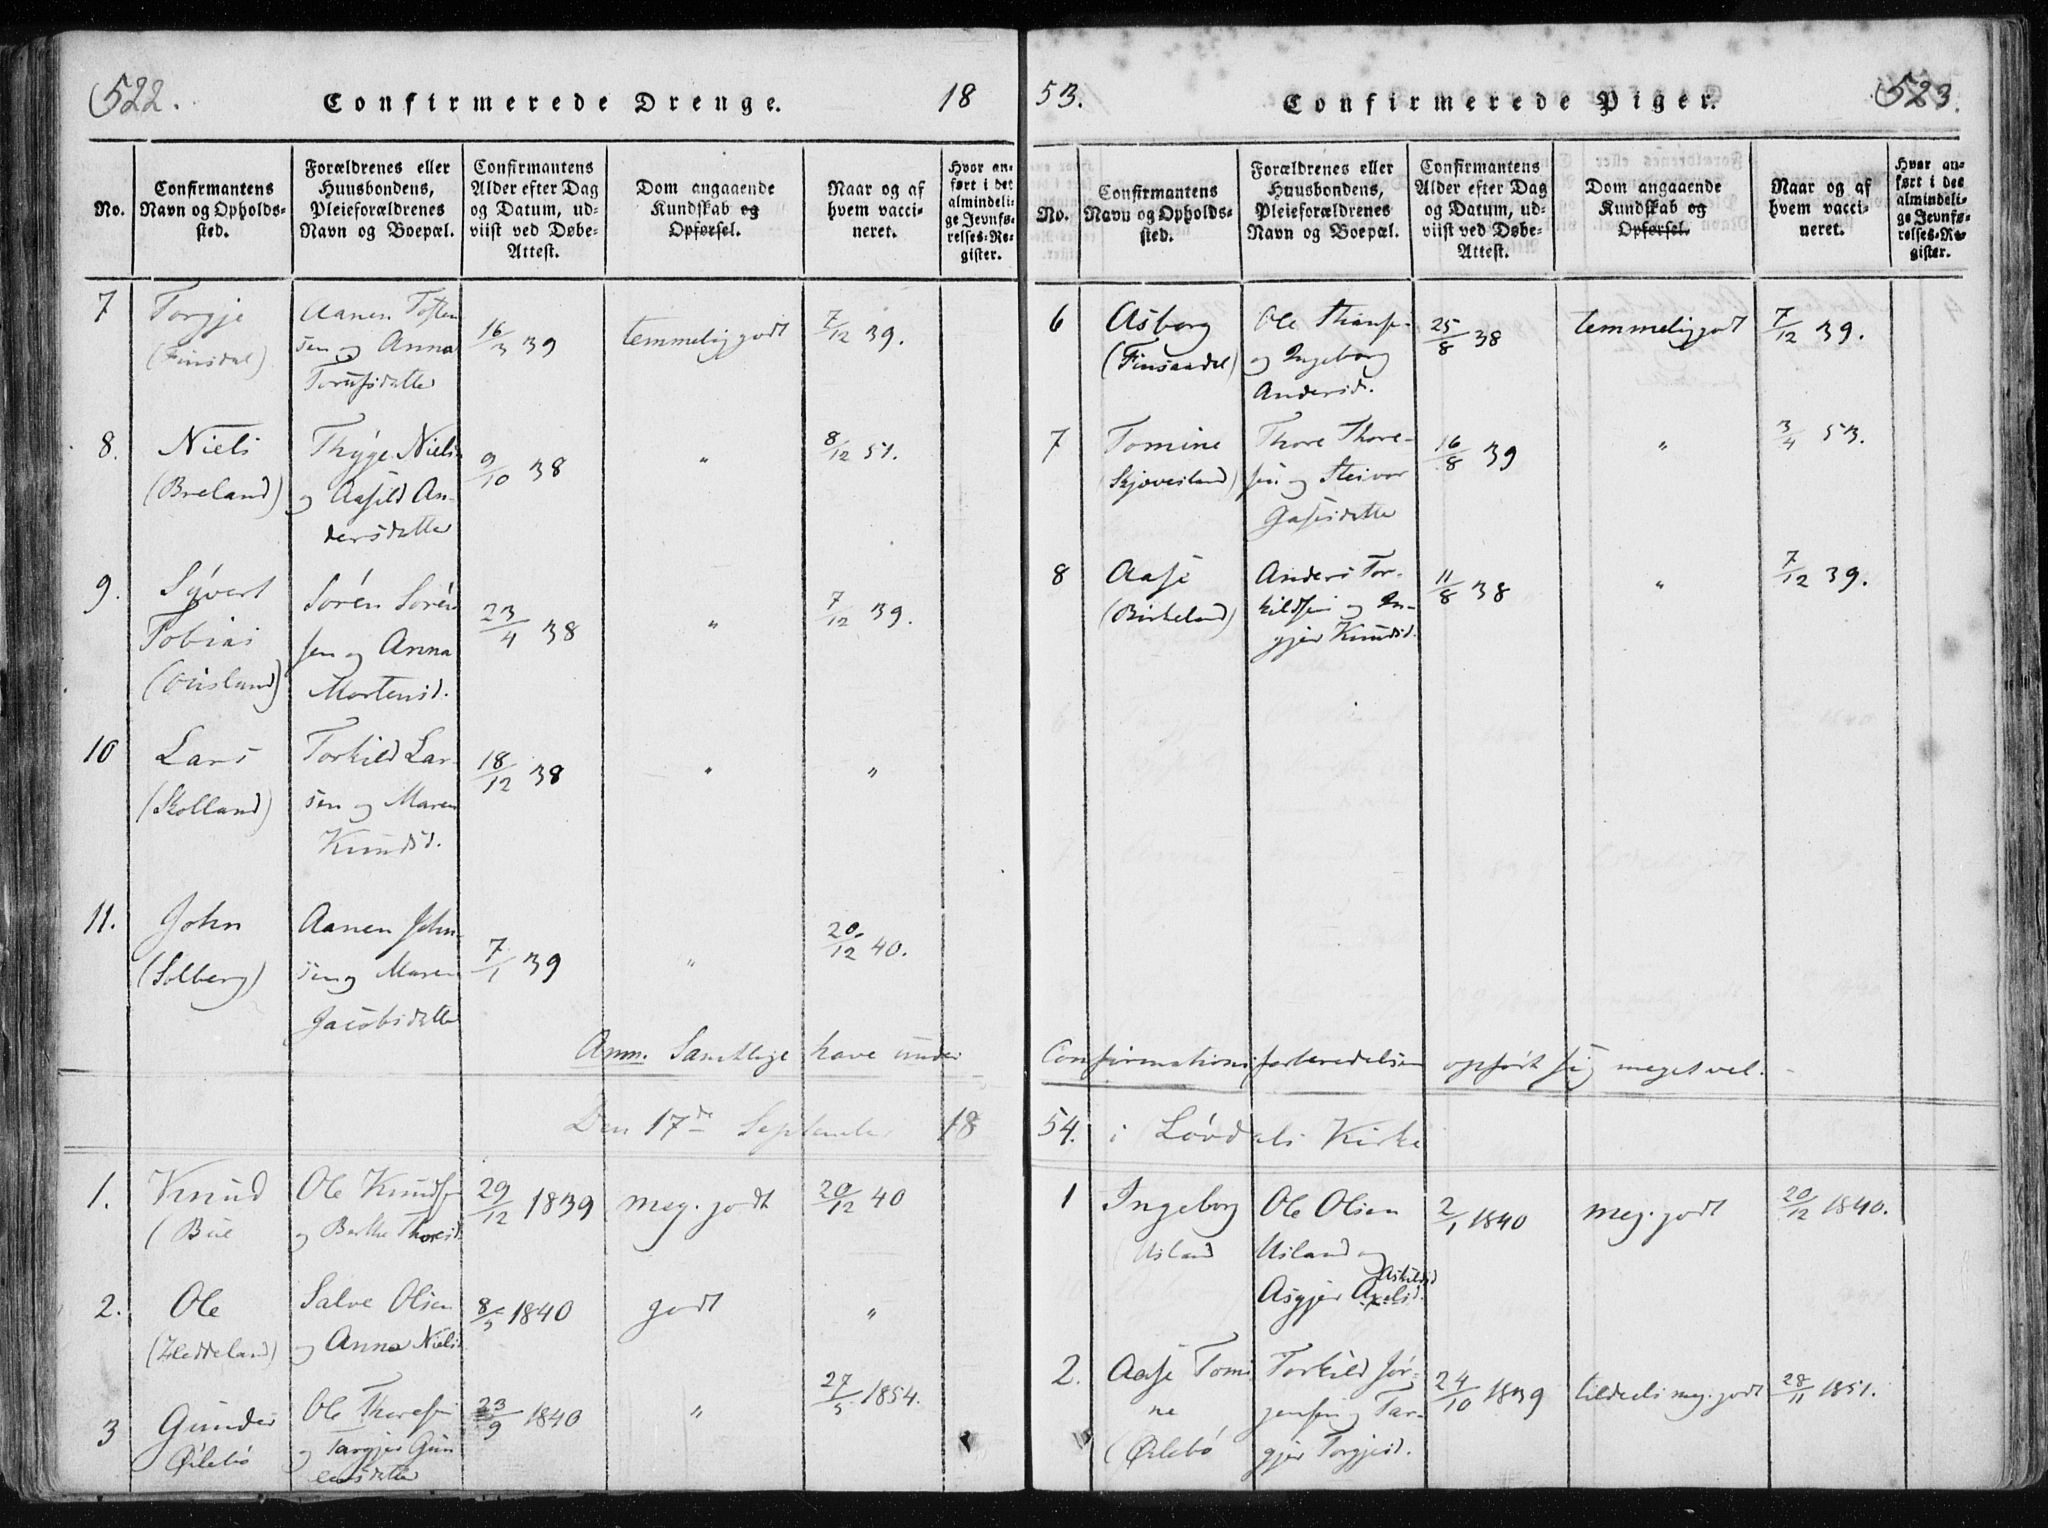 522.
Confirmerede Drenge.
18
No.
Confirmantens Navn og Opholdssted.
Forældrenes eller Huusbondens, Pleieforældrenes Navn og Boepæl.
Confirmantens Alder efter Dag og Datum, udviist ved Døbe-Attest.
Dom angaaende Kundskab og Opførsel.
Naar og af hvem vaccineret.
Hvor anført i det almindelige Jevnførelses-Register.
7 Torgje (Finsdal) Aanen Toften sen og Anna 16/3 39 temmelig godt 7/12 39.
8. Niels (Breland) Thyge Niels og Aasild Andersdatter 9/10 38 " 8/12 51.
9. Syvert Tobias Søren Sørensen og Anna Mortensd. 23/4 38 " 7/12 39.
10 Lars (Skolland) Torkild Larsen og Maren Knudsd. 18/12 38 " "
11. John (Solberg) Aanen Johnsen og Maren Jacobsdatter 7/1 39 " 20/12 40.
Anm. Samtlige have under
Den 17de September 18
1. Knud (Bue Ole Knudsen og Berthe Thoresd. 29/12 1839 meg. godt 20/12 40
2. Ole (Heddeland) Salve Olsen og Anna Nielsd. 8/5 1840 godt "
3 Gunder Øilebø Ole Thoresen og Targjer Gundersdatter 23/9 1840 " 27/5 1854.
53.
Confirmerede Piger.
523.
No.
Confirmantens Navn og Opholdssted.
Forældrenes eller Huusbondens, Pleieforældrenes Navn og Boepæl.
Confirmantens Alder efter Dag og Datum, udviist ved Døbe-Attest.
Dom angaaende Kundskab og Opførsel.
Naar og af hvem vaccineret.
Hvor anført i det almindelige Jevnførelses-Register.
6 Asborg (Finsaadal) Ole og Ingeborg Andersd. 25/8 38 temmelig godt 7/12 39.
7 Tomine Skjævesland) Thore Thoresen og Steivor 16/8 39 " 3/4 53.
8 Aase (Birkeland) Anders Torkildsen og Ingjer Knudsd. 11/8 38 " 7/12 39.
Confirmationsforberedelsen opført sig meget vel.
54. i Løvdals Kirke
1 Ingeborg (Usland Ole Olsen Usland og Asgjer Axelsd. Askildsd 2/1 1840 meg. godt 20/12 1840.
2. Aase Tomine (Øilebø Torkild Jørgensen og Targjer Torgjesd. 24/10 1839 tildeels meg. godt 28/11 1851.